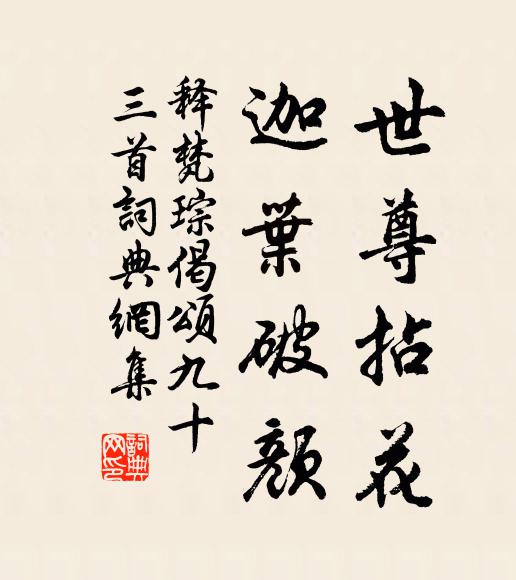 世尊拈花
迦葉破顔
释梵琮偈頌九十
三首詞典網集
詞典網印